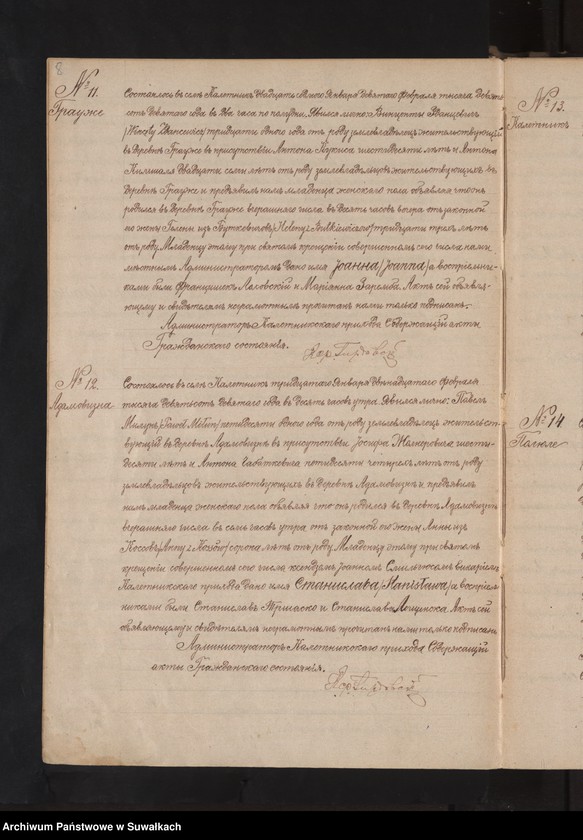 8
№ 11.
Грауже
Состоялось въ селѣ Калетникъ двадцать седьмого Января девятого февраля тысяча девять-
сотъ девятого года въ два часа по полудни. Явился лично: Винцентъ Жданцевичъ
/Wincenty Zdancewicz/ тридцати одного года отъ роду земледѣлецъ жительствующій
въ деревнѣ Грауже въ присутствіи Антона шестидесяти лѣтъ и Антона
двадцати семи лѣтъ отъ роду земледѣльцовъ жительствующихъ въ
деревнѣ Грауже и предъявилъ намъ младенца женскаго пола объявляя что онъ
родился въ деревнѣ Грауже вчерашняго числа въ десять часовъ вечера отъ законной
его жены Елены изъ Буткевичовъ /Heleny z Butkiewiczow/ тридцати трехъ лѣтъ
отъ роду. Младенцу этому при святомъ крещеніи совершенномъ сего числа нами
мѣстнымъ Администраторомъ дано имя Joанна /Joanna/ а воспріемни-
ками были Францишекъ Лясовскій и Маріанна Заремба. Актъ сей объявля-
ющему и свидѣтелямъ неграмотнымъ прочитанъ нами только подписанъ.
Администраторъ Калетникскаго прихода Содержащій акты
Гражданскаго состоянія.
№ 12.
Адамовизна
Состоялось въ селѣ Калетникъ тридцатаго Января двенадцатаго февраля
тысяча девятьсотъ девятаго года въ десять часовъ утра. Явился лично: Павелъ
/Paweł/ пятидесяти одного года отъ роду земледѣлецъ жительст-
вующій въ деревнѣ Адамовизнѣ въ присутствіи Іосифа шести-
десяти лѣтъ и Антона пятидесяти четырехъ лѣтъ отъ роду
земледѣльцовъ жительствующихъ въ деревнѣ Адамовизнѣ и предъявилъ
намъ младенца женскаго пола объявляя что онъ родился въ деревнѣ Адамовизнѣ
вчерашняго числа въ семь часовъ утра отъ законной его жены Анны изъ
/Anny z / сорока лѣтъ отъ роду. Младенцу этому при святомъ
крещеніи совершенномъ сего числа ксендзомъ Іоанномъ викаріемъ
Калетникскаго прихода дано имя Станислава /Stanisława/ а воспріем-
никами были Станиславъ и Станислава. Актъ сей
объявляющему и свидѣтелямъ неграмотнымъ прочитанъ нами только подписанъ.
Администраторъ Калетникскаго прихода Содержащій
акты Гражданскаго состоянія.
№ 13.
Калетникъ
№ 14
Archiwum Państwowe w Suwałkach